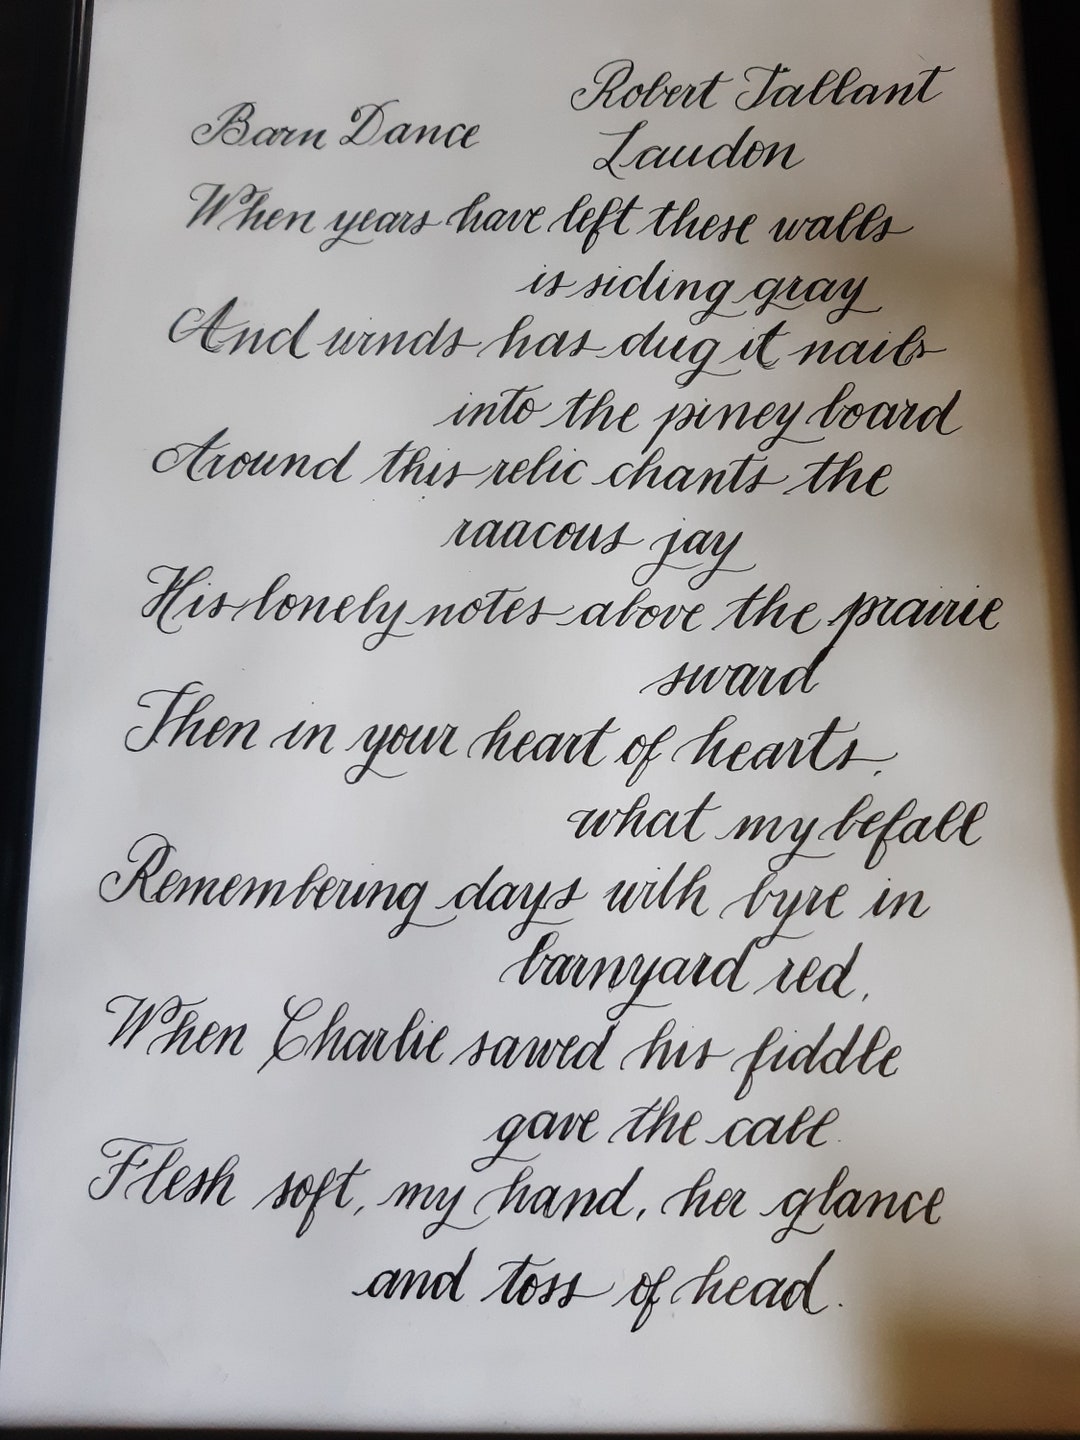 Robert Tallant
Barn Dance Laudon
When years have left these walls
is siding gray
And winds has dug it nails
into the piney board
Around this relic chants the
raacous jay
His lonely notes above the prairie
sward
Then in your heart of hearts,
what my befall
Remembering days with byre in
barnyard red,
When Charlie sawed his fiddle
gave the call.
Flesh soft, my hand, her glance
and toss of head.